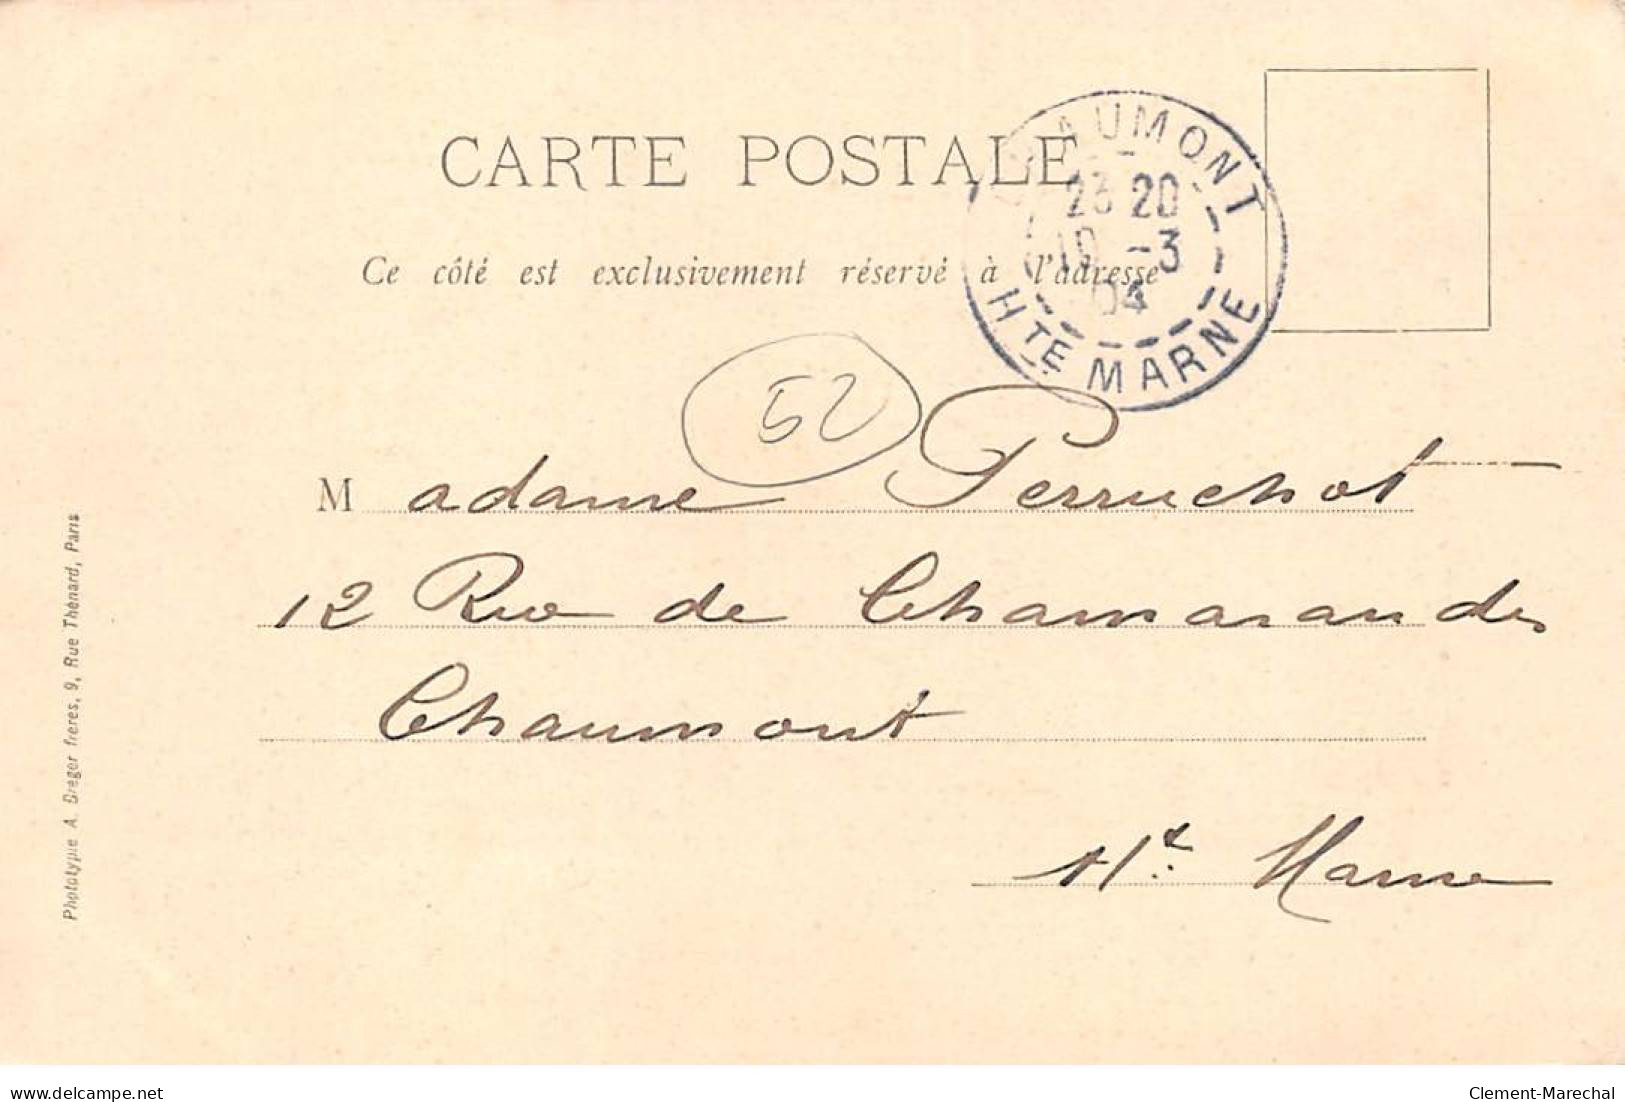 CARTE POSTALE
Ce côté est exclusivement réservé à l'adresse
CHAUMONT
23 20
10 -3
04
HTE MARNE
52
Madame Perruchot
12 Rue de Chamarandes
Chaumont
Hte Marne
Phototypie A. Dreger freres, 9, Rue Thénard, Paris
delcampe.net
Clement-Marechal